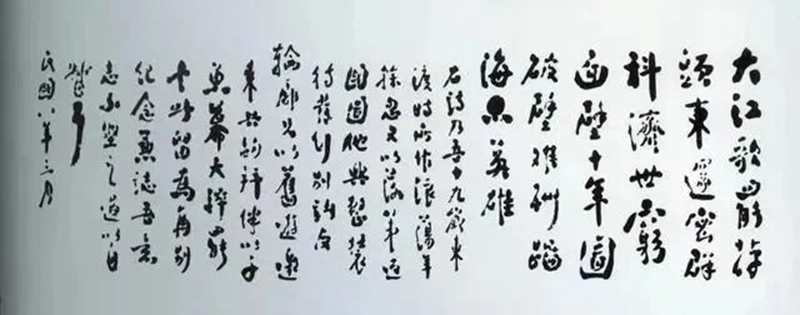 大江歌罷掉
頭東邃密群
科濟世窮
面壁十年圖
破壁難酬蹈
海亦英雄
右詩乃吾十九歲東
渡時所作浪蕩年
餘忽又以落第返
國圖他興整裝
待發行別諸友
輪扉兄以舊遊邀
來共酌并伴以子
魚慕天醉罷
書此留為再別
紀念兼誌吾意
志不堅之過以自
督耳
民國八年三月